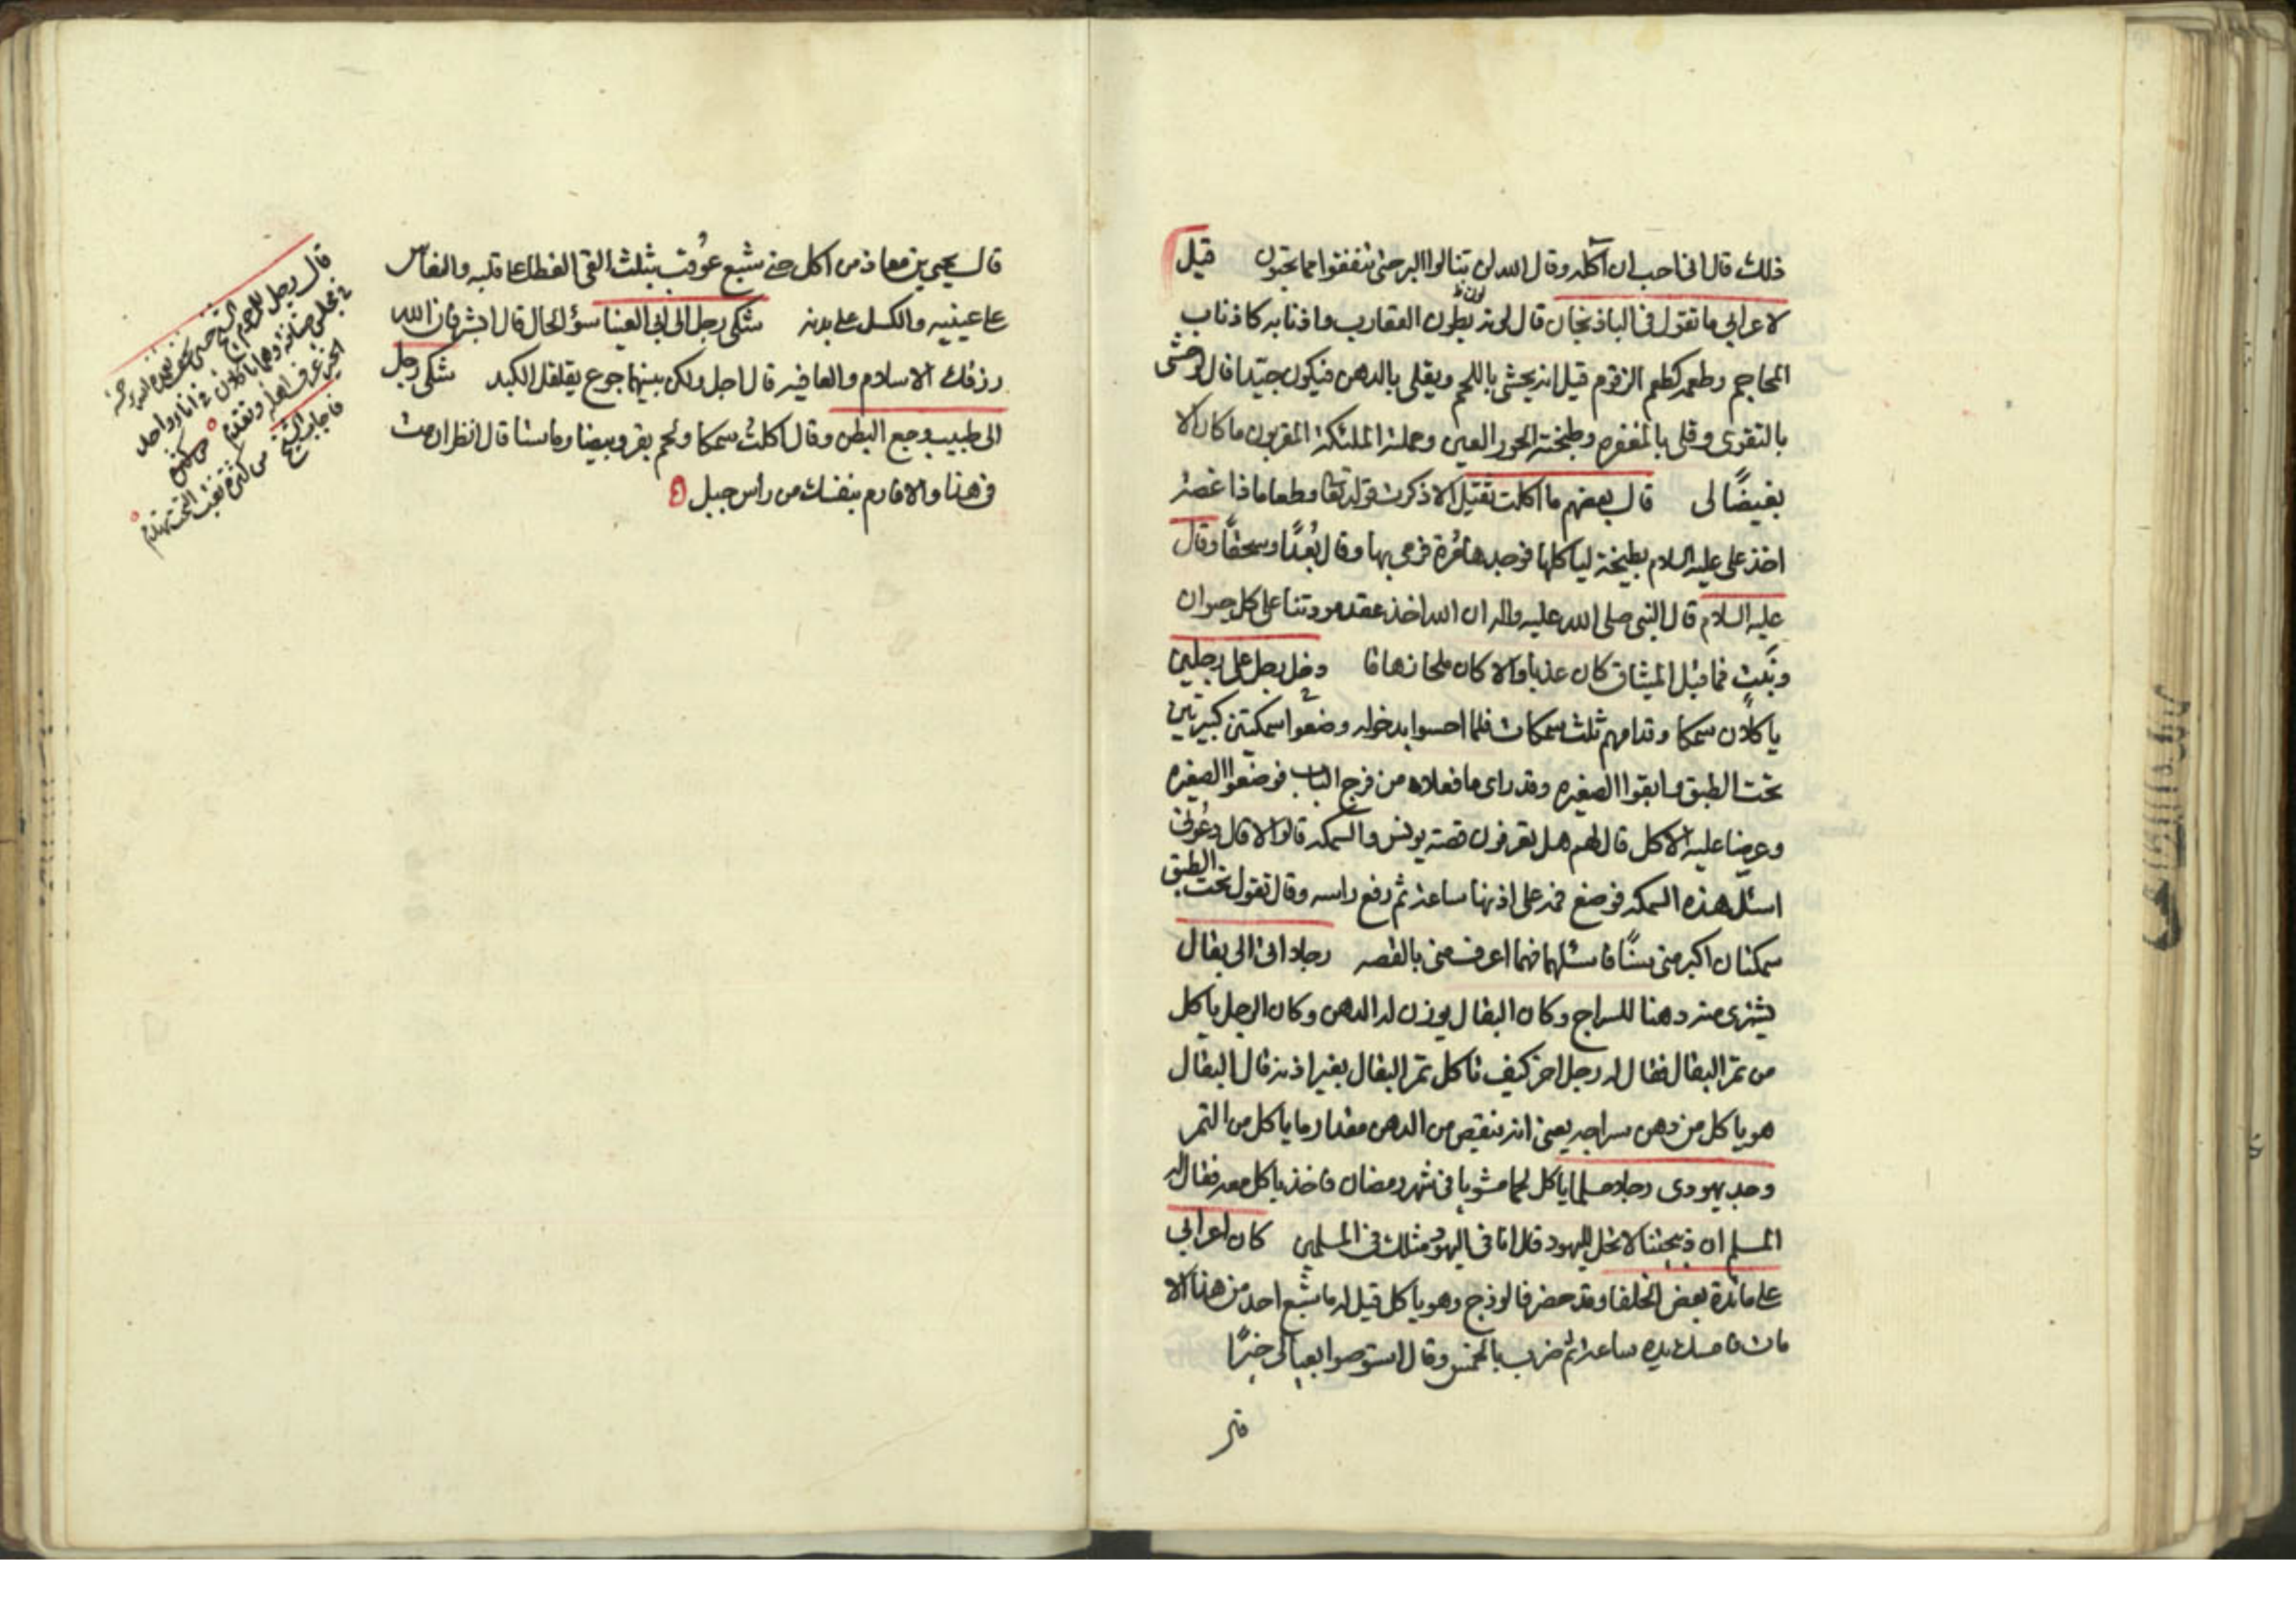 ذلك قال انى احب ان آكله وقال الله لن تنالوا البر حتى تنفقوا مما تحبون قيل
لاعرابي ما تقول في الباذنجان قال لونه بطون العقارب واذنابه كاذناب
المحاجم وطعمه كطعم الزقوم قيل انه يحشى باللحم ويقلى بالدهن فيكون جيّدا قال لو حشى
بالتقوى وقلى بالمغفره وطبخته الحور العين وحملته الملئكة المقربون ما كان الا
بغيضًا لى قال بعضهم ما اكلت ثقيل الا ذكرت قوله تعا وطعاما ذا غصة
اخذ على عليه السلام بطيخة لياكلها فوجدها مُرة فرمى بها وقال بُعدًا وسحقًا وقال
عليه السلام قال النبى صلى الله عليه واله ان الله اخذ عقد مودتنا على كل حيوان
ونبت فما قبل الميثاق كان عذبا والا كان ملحا زهاقا دخل رجل على رجلين
ياكلان سمكا وقدامهم ثلث سمكات فلما احسوا بدخوله وضعوا سمكتين كبيرتين
تحت الطبق وابقوا الصغيره وقد راى ما فعلاه من فرج الباب فوضعوا الصغيره
وعرضا عليه الاكل قال لهم هل تعرفون قصة يونس والسمكه قالوا لا قال دعونى
اسئل هذه السمكه فوضع فمه على اذنها ساعة ثم رفع راسه وقال تقول تحت الطبق
سمكتان اكبر منى سنًّا فاسئلهما فهما اعرف منى بالقصه رجلا اتى الى بقال
يشترى منه دهنا للسراج وكان البقال يوزن له الدهن وكان الرجل ياكل
من تمر البقال فقال له رجل اخر كيف تاكل تمر البقال بغير اذنه قال البقال
هو ياكل من دهن سراجه يعنى انه ينقص من الدهن مقدار ما ياكل من التمر
وجد يهودى رجلا مسلما ياكل لحما مشويا في شهر رمضان فاخذ ياكل معه فقال له
المسلم ان ذبيحتنا لا تحل لليهود قال انا في اليهود مثلك في المسلمين كان اعرابي
على مائدة بعض الخلفا وقد حضر فالوذج وهو ياكل قيل له ما شبع احد من هذا الا
مات فامسك يده ساعة ثم ضرب بالخمس وقال استوصوا بعيالى خيرًا
قال يحيى بن معاذ من اكل حتى شبع عُوقب بثلث القى الغطا على قلبه والنعاس
على عينيه والكسل على بدنه شكى رجل الى ابى العينا سؤ الحال قال ابشر فان الله
رزقك الاسلام والعافيه قال اجل ولكن بينهما جوع يقلقل الكبد شكى رجل
الى طبيب وجع البطن وقال اكلتُ سمكا ولحم بقر وبيضا وماستا قال انظر ان مت
في هذا والا فارم بنفسك من راس جبل
قال رجل
في مجلس
وهما ياكلان في انا واحد
فاجابه الشيخ